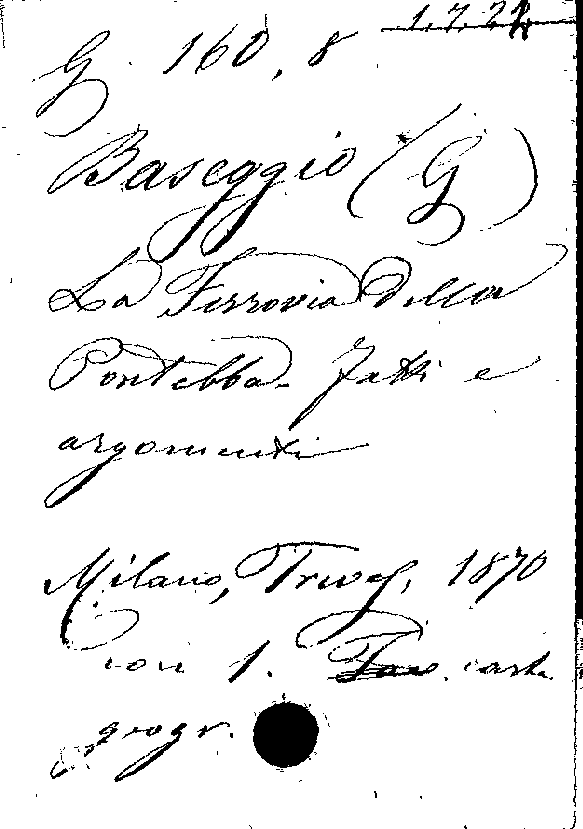 1.7.22
G. 160, 8
Baseggio (G)
La Ferrovia della
Pontebba. Fatti e
argomenti
Milano, Treves, 1870
con 1. Tav. carta
geogr.